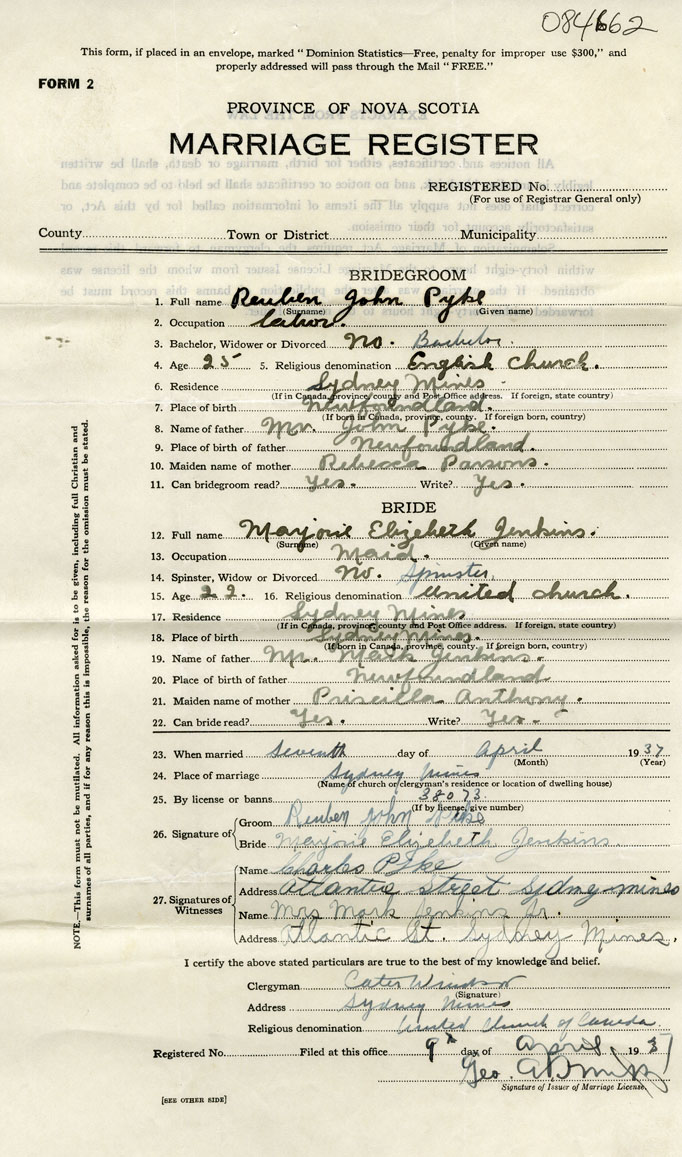 084662
This form, if placed in an envelope, marked "Dominion Statistics—Free, penalty for improper use $300," and
properly addressed will pass through the Mail "FREE."
FORM 2
PROVINCE OF NOVA SCOTIA
MARRIAGE REGISTER
REGISTERED No.
(For use of Registrar General only)
County Town or District Municipality
BRIDEGROOM
1. Full name Reuben John Pyke
(Surname) (Given name)
2. Occupation labor.
3. Bachelor, Widower or Divorced no. Bachelor
4. Age 25 5. Religious denomination English church.
6. Residence Sydney Mines
(If in Canada, province, county and Post Office address. If foreign, state country)
7. Place of birth Newfoundland.
(If born in Canada, province, county. If foreign born, country)
8. Name of father Mr. John Pyke.
9. Place of birth of father Newfoundland.
10. Maiden name of mother Rebecca Parsons.
11. Can bridegroom read? Yes. Write? Yes.
BRIDE
12. Full name Marjorie Elizebeth Jenkins.
(Surname) (Given name)
13. Occupation Maid.
14. Spinster, Widow or Divorced no. Spinster
15. Age 22. 16. Religious denomination United church.
17. Residence Sydney Mines
(If in Canada, province, county and Post Office address. If foreign, state country)
18. Place of birth Sydney Mines.
(If born in Canada, province, county. If foreign born, country)
19. Name of father Mr. Mark Jenkins.
20. Place of birth of father Newfoundland
21. Maiden name of mother Priscilla Anthony.
22. Can bride read? Yes. Write? Yes.
23. When married Seventh day of April 1937
(Month) (Year)
24. Place of marriage Sydney Mines
(Name of church or clergyman's residence or location of dwelling house)
25. By license or banns 38073
(If by license, give number)
26. Signature of
Groom Reuben John Pike
Bride Marjorie Elizebeth Jenkins.
27. Signatures of Witnesses
Name Charles Pyke
Address Atlantic street Sydney mines
Name Mrs Mark Jenkins Jr.
Address Atlantic St. Sydney Mines.
I certify the above stated particulars are true to the best of my knowledge and belief.
Clergyman Cater Windsor
(Signature)
Address Sydney Mines
Religious denomination United Church of Canada.
Registered No. Filed at this office 9th day of April 1937
Geo.
Signature of Issuer of Marriage License.
[SEE OTHER SIDE]
NOTE.—This form must not be mutilated. All information asked for is to be given, including full Christian and
surnames of all parties, and if for any reason this is impossible, the reason for the omission must be stated.